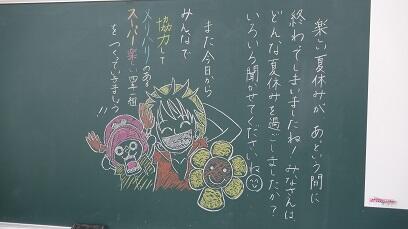 楽しい夏休みが、あという間に
終わってしまいましたね！みなさんは、
どんな夏休みを過ごしましたか？
いろいろ聞かせてくださいね
また今日から
みんなで
協力して
メリハリのある
スーパー楽しい四年一組
をつくっていきましょう!!